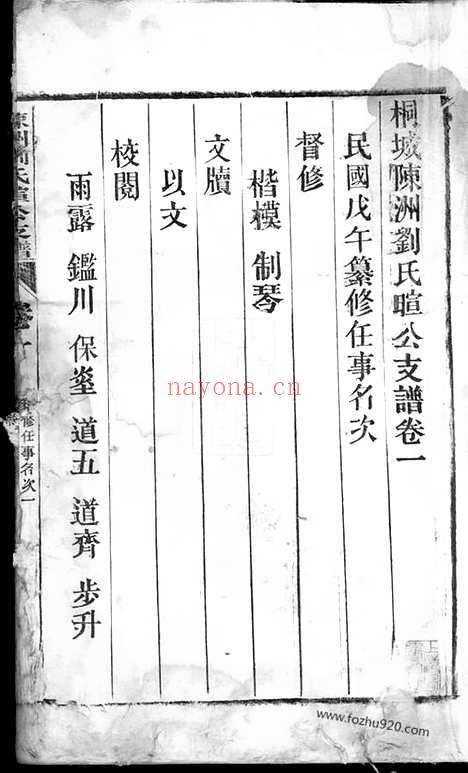 桐城陳洲劉氏暄公支譜卷一
民國戊午纂修任事名次
督修
楷模 制琴
文牘
以文
校閱
雨露 鑑川 保釜 道五 道齊 步升
氏暄公支譜
修任事名次一
nayona.cn
www.fozhu920.com